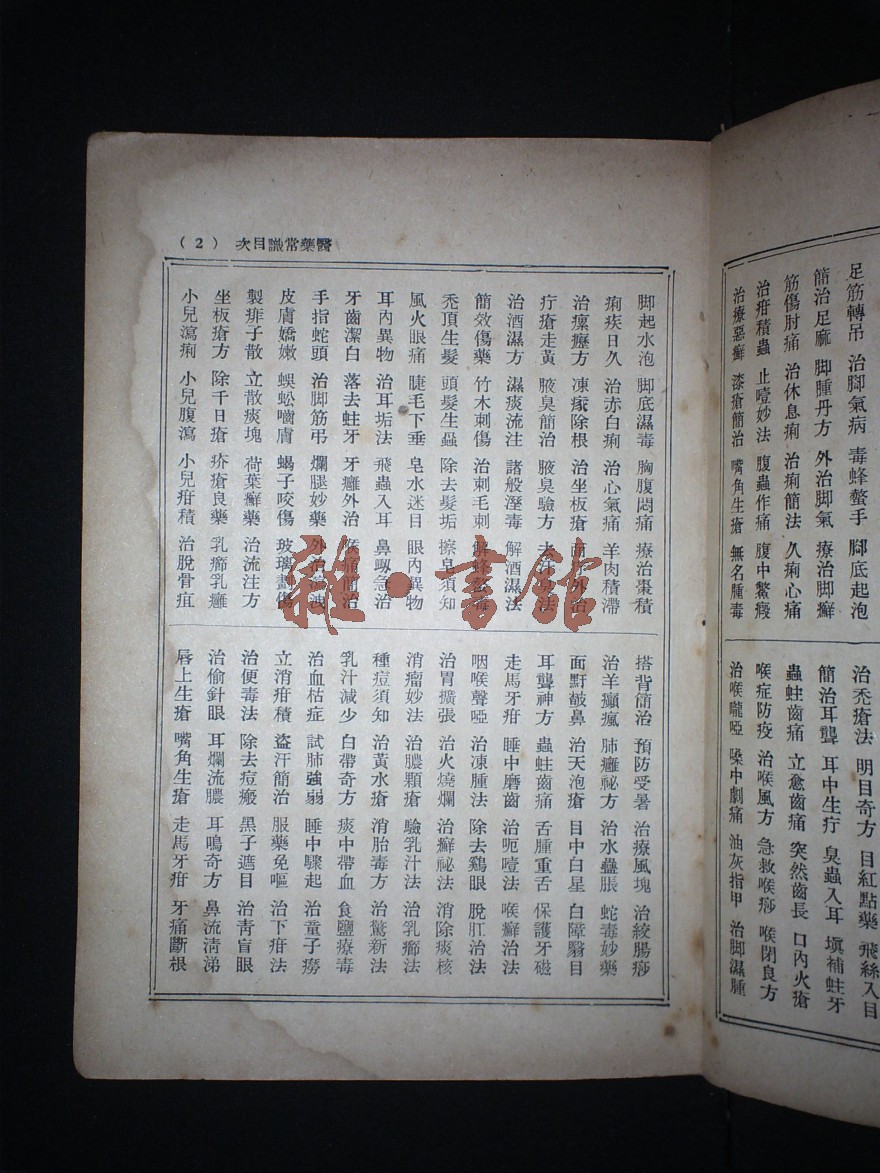 足筋轉吊 治脚氣病 毒蜂螫手 脚底起泡
簡治足麻 脚腫丹方 外治脚氣 療治脚癬
筋傷肘痛 治休息痢 治痢簡法 久痢心痛
治疳積蟲 止噎妙法 腹蟲作痛 腹中鱉瘕
治療惡癬 漆瘡簡治 嘴角生瘡 無名腫毒
治禿瘡法 明目奇方 目紅點藥 飛絲入目
簡治耳聾 耳中生疔 臭蟲入耳 填補蛀牙
蟲蛀齒痛 立愈齒痛 突然齒長 口內火瘡
喉症防疫 治喉風方 急救喉痧 喉閉良方
治喉嚨啞 嗓中劇痛 油灰指甲 治脚濕腫
醫藥常識目次 （2）
脚起水泡 脚底濕毒 胸腹悶痛 療治棗積
痢疾日久 治赤白痢 治心氣痛 羊肉積滯
治瘰癧方 凍瘃除根 治坐板瘡 外治
疔瘡走黃 腋臭簡治 腋臭驗方
治酒濕方 濕痰流注 諸般溼毒 解酒濕法
簡效傷藥 竹木刺傷 治刺毛刺 解蜂螫毒
禿頂生髮 頭髮生蝨 除去髮垢 擦皂須知
風火眼痛 睫毛下垂 皂水迷目 眼內異物
耳內異物 治耳垢法 飛蟲入耳 鼻衂急治
牙齒潔白 落去蛀牙 牙癰外治 喉痛簡治
手指蛇頭 治脚筋弔 爛腿妙藥
皮膚嬌嫩 蜈蚣嚙膚 蝎子咬傷 玻璃劃傷
製痱子散 立散痰塊 荷葉癬藥 治流注方
坐板瘡方 除千日瘡 疥瘡良藥 乳癤乳癰
小兒瀉痢 小兒腹瀉 小兒疳積 治脫骨疽
搭背簡治 預防受暑 治療風塊 治絞腸痧
治羊癲瘋 肺癰祕方 治水蠱脹 蛇毒妙藥
面䵟皶鼻 治天泡瘡 目中白星 白障醫目
耳聾神方 蟲蛀齒痛 舌腫重舌 保護牙磁
走馬牙疳 睡中磨齒 治呃噎法 喉癬治法
咽喉聲啞 治凍腫法 除去鷄眼 脫肛治法
治胃擴張 治火燒爛 治癬祕法 消除痰核
消瘤妙法 治膿顆瘡 驗乳汁法 治乳癤法
種痘須知 治黃水瘡 消胎毒方 治驚新法
乳汁減少 白帶奇方 痰中帶血 食鹽療毒
治血枯症 試肺強弱 睡中驟起 治童子癆
立消疳積 盜汗簡治 服藥免嘔 治下疳法
治便毒法 除去痘瘢 黑子遮目 治靑盲眼
治偷針眼 耳爛流膿 耳鳴奇方 鼻流清涕
唇上生瘡 嘴角生瘡 走馬牙疳 牙痛斷根
雜·書館